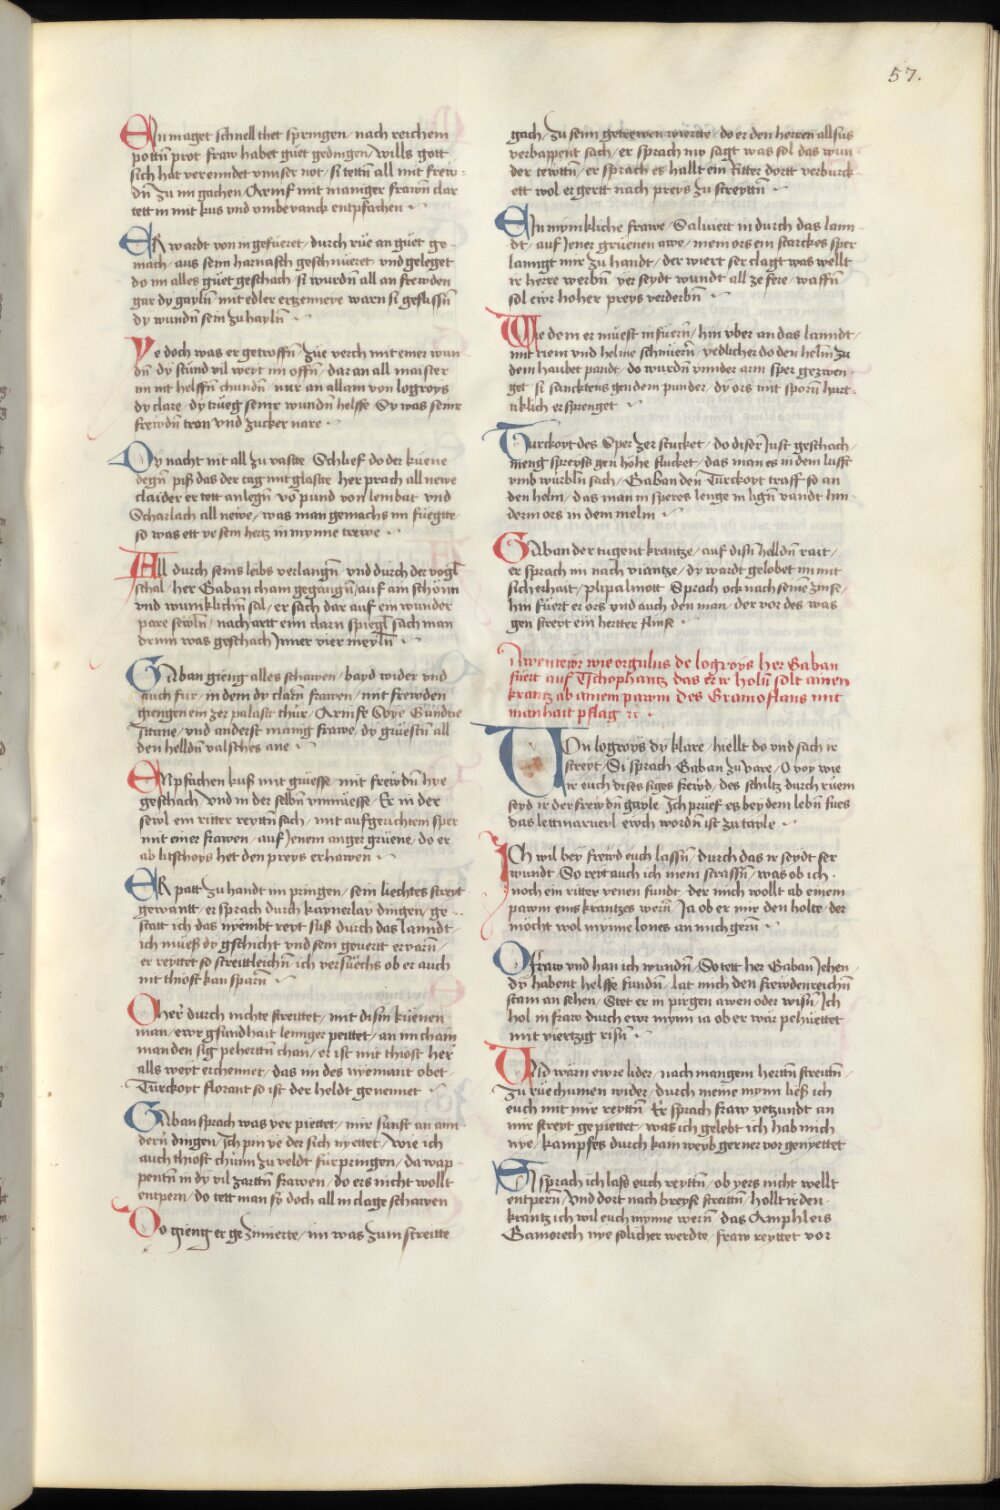 57.
Ein maget schnell thet springen / nach reichem
pottn̄ prot fraw habet güet gedingen / wills gott
sich hat verenndet vnnser not / si tettn̄ all mit frew
dn̄ zu im gachen / Arnif mit maniger frawn̄ clar
tett in mit kus vnd vmbevanck entpfachen
ER wardt von in gefüeret / durch rüe an güet ge
mach / aus seim harnasch geschnüeret vnd geleget
do im alles güet geschach / si wurdn̄ all an frewden
gar dy gayln̄ / mit edler ertzenneye warn si geflissn̄
dy wundn̄ sein zu hayln̄
Ye doch was er getroffn̄ / züe verch mit einer wun
dn̄ dy stünd vil weyt im offn̄ / dar an all maister
im nit helffn̄ chundn̄ / nur an allain von logroys
dy clare / dy trüeg seine wundn̄ helffe / Sy was seine
frewdn̄ tran vnd zucker nare
Dy nacht nit all zu vaste Schlief do der küene
degn̄ piß das der tag mit glaste her prach all newe
claider er tett anlegn̄ vō pund von lembat vnd
Scharlach all newe / was man gemachs im füegte
so was ett ye sein hertz in mynne trewe
All durch seins leibs verlangn̄ vnd durch der vogl
schal / her Gaban cham gegangn̄ / auf ain schönn
vnd wunniklichn̄ sal / er sach dar auf ein wunder
pare sewln̄ / nach artt eim clarn spiegl sach man
drinn was geschach Inner vier meyln̄
Gaban gieng alles schawen / bayd wider vnd
auch für / in dem dy clarn̄ frawen / mit frewden
giengen ein zer palastt thür / Arnife Soye Gundrie
Ittanie / vnd anderst manig frawe / dy grüestn̄ all
den helldn̄ valsches ane
ENpfachen kuß mit grüesse / mit frewdn̄ hye
geschach / vnd in der selbn̄ vnmüesse / Er in der
sewl ein ritter reyttn̄ sach / mit aufgerichtem sper
mit einer frawen / auf Jenem anger grüene / do er
ab litschoys het den preys erhawen
ER patt zu handt im pringen / sein liechtes streyt
gewantt / er sprach durch kaynerlay dingen / ge
statt ich das nyembt reyt suß durch das lanndt
ich müeß dy gschicht vnd sein geuertt ervarn̄ /
er reyttet so streittleichn̄ ich versüechs ob er auch
nit thiost kan sparn̄
O her durch nichte streittet / mit disn̄ küenen
man / ewr gsundhait lennger peittet / an im chain
man den sig pehertn̄ chan / er ist mit thiost her
alls weyt erchennet / das im des nyemant obet
Turckoyt florant so ist der heldt genennet
Gaban sprach was yer piettet / mir sunst an ain
dern̄ dingen / Ich pin ye der sich nyettet / wie ich
auch thiost chünn zu veldt fürpringen / da wap
pentn̄ in dy vil zartn̄ frawen / do ers nicht wollt
entpern / do tett man sy doch all in clage schawen
Do gieng er gezimierte / im was zum streitte
gach / zu seim getrewen wiertte / do er den herren allsus
verbappent sach / er sprach my sagt was sol das wun
der tewttn̄ / er sprach es hallt ein Ritter dortt verburck
ett wol er gertt nach preys zu streyttn̄
Ein mynnkliche frawe / Saluiert in durch das lann
dt / auf Jener grüenen awe / mein ors ein starckes sper
lanngt mir zu handt / der wiert ser clagt was wellt
ir herre werbn̄ / yer seydt wundt all ze sere / waffn̄
sol ewr hoher preys verderbn̄
Wie dem er müest in füern̄ / hin vber an das lanndt /
mit riem vnd helme schnüern̄ / yedlicher do den helm̄ zu
dem haubet pandt / do wurdn̄ vnnder arm sper gezwen
get / si sancktens gen dem punder / dy ors mit sporn̄ hurt
tiklich ersprenget
Turckoyt des Sper zer stucket / do diser Just geschach /
meng spreyss gen höhe flucket / das man es in dem lufft
vmb würbln̄ sach / Gaban den Turckoyt traff so an
den helm / das man in speres lenge in lign̄ vandt hin
derm ors in dem melm
Gaban der tugent krantze / auf disn̄ helldn̄ rait /
er sprach im nach viantze / dy wardt gelobet im mit
sicherhait / plipalinott Sprach ock nach seinē zinse /
hin füert er ors vnd auch den man / der vor des was
gen streyt ein hertter flinse
Awentewr wie orgulus de logroys her Gaban
füert auf Tschophantz das er ir holn̄ solt ainen
krantz ab ainem pawm des Gramoflans mit
manhait pflag ꝛc
VOn logroys dy klare / hiellt do vnd sach ir
streyt / Si sprach Gaban zu vare / O voy wie
ir euch dises siges frewd / des schiltz durch rüem
seyd ir der frewdn̄ gayle / Ich prüef es bey dem lebn̄ sües
das lettmarueyl ewch wordn̄ ist zu tayle
ICh wil bey frewd euch lassn̄ / durch das ir seydt ser
wundt So reyt auch ich mein strassn̄ / was ob ich
noch ein ritter yenen fundt / der mich wollt ab einem
pawm eins krantzes wern̄ / Ja ob er mir den holte / der
möcht wol mynne lones an mich gern̄
O fraw vnd han ich wundn̄ / So tett her Gaban Jehen
dy habent helffe fundn̄ / lat mich den frewdenreichn̄
stam an sehen / Stet er in pürgen awen oder wisn̄ / Ich
hol in fraw durch ewr mynn ia ob er wär pehüettet
mit viertzig risn̄
Vnd wärn ewre lider / nach mangem herttn̄ streittn̄
zu rüe chumen wider / durch meine mynn ließ ich
euch mit mir reyttn̄ Er sprach fraw yetzundt an
mir streyt gepiettet / was ich gelebt ich hab mich
nye / kampfes durch kain weyb gerner vor genyettet
Si sprach ich laß euch reyttn̄ / ob yers nicht wellt
entpern̄ / vnd dort nach breyse streittn̄ hollt ir den
krantz ich wil euch mynne wern̄ das Amphleis
Gamoreth nye solicher werdte / fraw reyttet vor